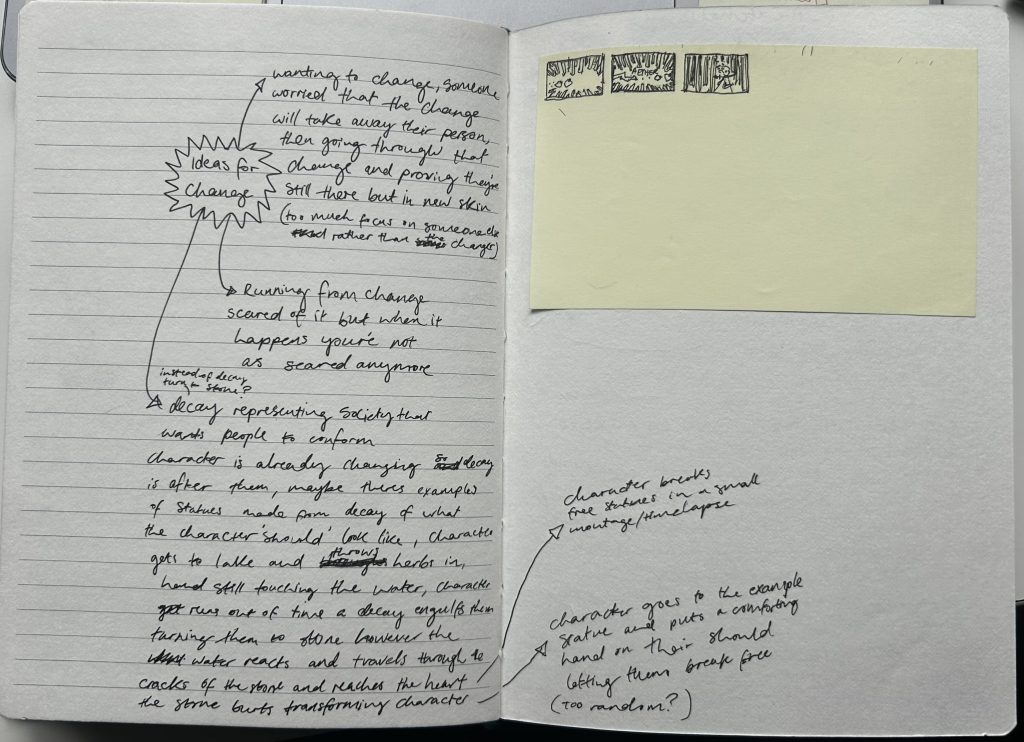 Ideas for
Change
wanting to change, someone
worried that the change
will take away their person,
then going through that
change and proving they're
still there but in new skin
(too much focus on someone else
rather than the changes)
Running from change
scared of it but when it
happens you're not
as scared anymore
instead of decay
turn to stone?
decay representing society that
wants people to conform
character is already changing so decay
is after them, maybe theres examples
of statues made from decay of what
the character 'should' look like, character
gets to lake and throws herbs in,
hand still touching the water, character
runs out of time a decay engulfs them
turning them to stone however the
water reacts and travels through the
cracks of the stone and reaches the heart
the stone bursts transforming character
character breaks
free statues in a small
montage/timelapse
character goes to the example
statue and puts a comforting
hand on their should
letting them break free
(too random?)